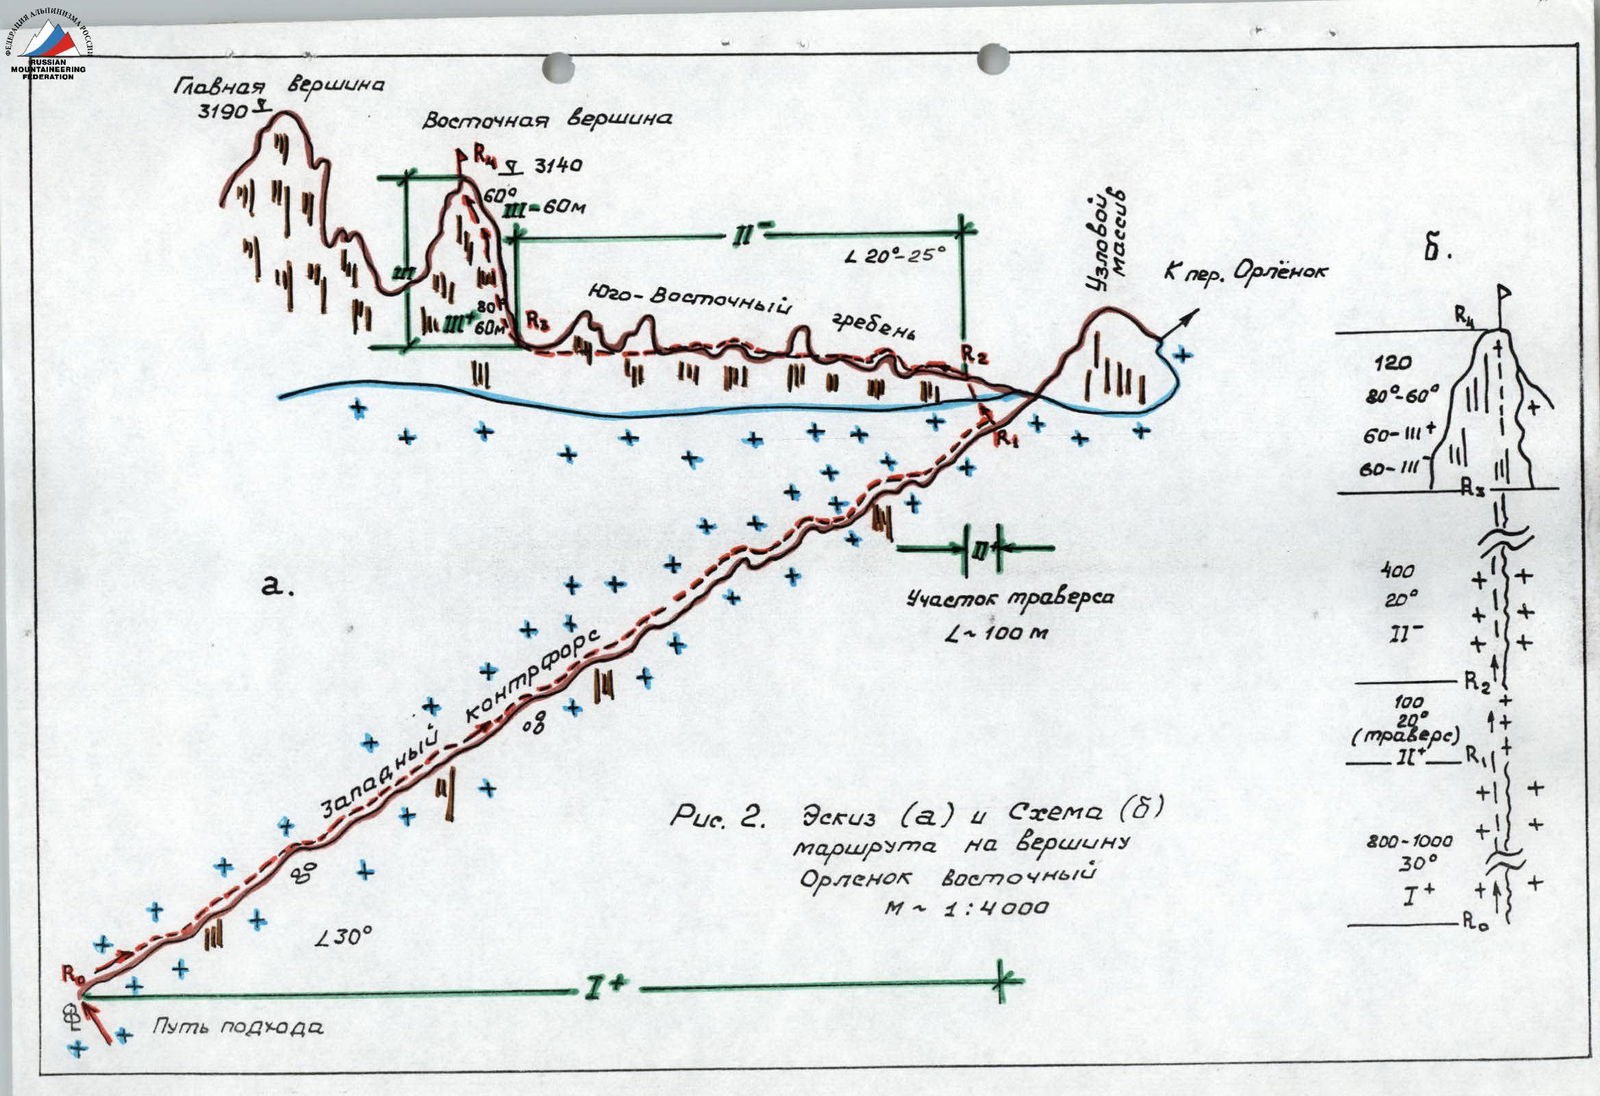 ФЕДЕРАЦИЯ АЛЬПИНИЗМА РОССИИ
RUSSIAN
MOUNTAINEERING
FEDERATION
Главная вершина
3190
Восточная вершина
R4 3140
60°
III- 60м
II-
∠ 20°-25°
Узловой
массив
К пер. Орлёнок
III
80°
III+ 60м
R3
Юго-Восточный гребень
R2
R1
II+
Участок траверса
L ~ 100 м
а.
Западный контрфорс
∠30°
R0
I+
Путь подхода
Рис. 2. Эскиз (а) и Схема (б)
маршрута на вершину
Орленок восточный
М ~ 1:4000
б.
R4
120
80°-60°
60-III+
60-III-
R3
400
20°
II-
R2
100
20°
(траверс)
II+ R1
800-1000
30°
I+
R0